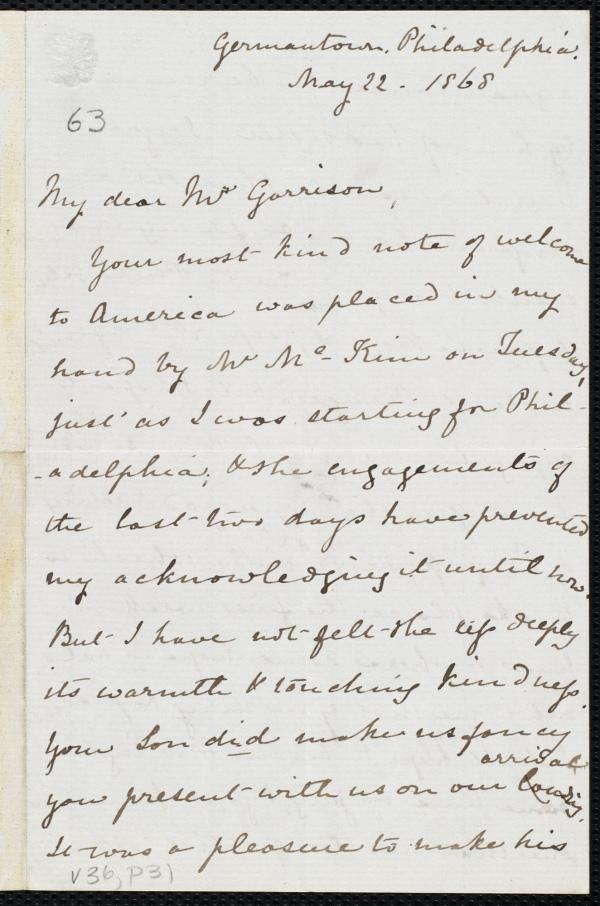 Germantown, Philadelphia.
May 22. 1868
63
My dear Mr Garrison,
Your most kind note of welcome
to America was placed in my
hand by Mr Mc-Kim on Tuesday,
just as I was starting for Phil-
-adelphia; & the engagements of
the last two days have prevented
my acknowledging it until now.
But I have not felt the less deeply
its warmth & touching kindness.
Your Son did make us fancy
you present with us on our landing,
arrival
It was a pleasure to make his
V36, P31